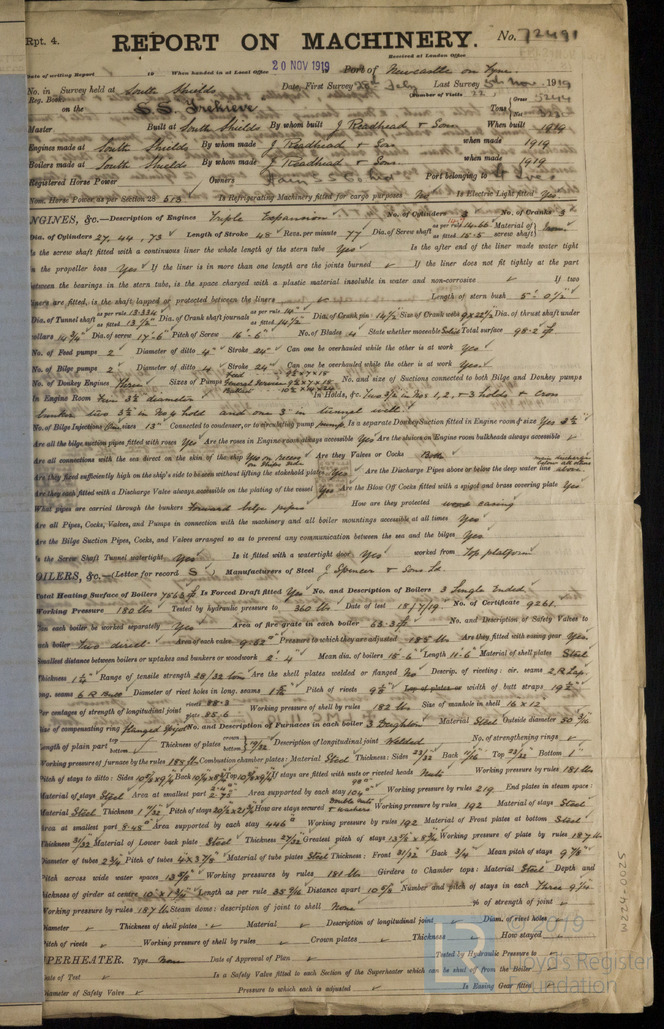 Rpt. 4.
REPORT ON MACHINERY. No. 72491
Received at London Office
Date of writing Report 19 When handed in at Local Office 20 NOV 1919 Port of Newcastle on Tyne
No. in Survey held at South Shields Date, First Survey July Last Survey Nov. 1919
Reg. Book. (Number of Visits 22)
on the S.S. Trehieve Tons Gross 5244 Net
Master Built at South Shields By whom built J Readhead & Sons When built 1919
Engines made at South Shields By whom made J Readhead & Sons when made 1919
Boilers made at South Shields By whom made J Readhead & Sons when made 1919
Registered Horse Power Owners Hain S S Co Ltd Port belonging to St Ives
Nom. Horse Power as per Section 28 513 Is Refrigerating Machinery fitted for cargo purposes No Is Electric Light fitted Yes
ENGINES, &c.—Description of Engines Triple Expansion No. of Cylinders 3 No. of Cranks 3
Dia. of Cylinders 27, 44, 73 Length of Stroke 48 Revs. per minute 77 Dia. of Screw shaft as per rule 14.66 as fitted 15.5 Material of screw shaft Iron
Is the screw shaft fitted with a continuous liner the whole length of the stern tube Yes Is the after end of the liner made water tight
in the propeller boss Yes If the liner is in more than one length are the joints burned If the liner does not fit tightly at the part
between the bearings in the stern tube, is the space charged with a plastic material insoluble in water and non-corrosive If two
liners are fitted, is the shaft lapped or protected between the liners Length of stern bush 5' 0½"
Dia. of Tunnel shaft as per rule 13.334 as fitted 13½" Dia. of Crank shaft journals as per rule 14" as fitted 14½ Dia. of Crank pin 14½ Size of Crank webs 9x22½ Dia. of thrust shaft under
collars 14¾ Dia. of screw 17'-6 Pitch of Screw 16'-6" No. of Blades 4 State whether moveable Solid Total surface 98.2
No. of Feed pumps 2 Diameter of ditto 4" Stroke 24" Can one be overhauled while the other is at work Yes
No. of Bilge pumps 2 Diameter of ditto 4" Stroke 24" Can one be overhauled while the other is at work Yes
No. of Donkey Engines Three Sizes of Pumps No. and size of Suctions connected to both Bilge and Donkey pumps
In Engine Room Four 3½ diameter In Holds, &c. Two 3½ in Nos 1, 2, & 3 holds & cross
bunker two 3½ in No 4 hold and one 3" in tunnel well
No. of Bilge Injections One sizes 13" Connected to condenser, or to circulating pump pump. Is a separate Donkey Suction fitted in Engine room & size Yes 3½
Are all the bilge suction pipes fitted with roses Yes Are the roses in Engine room always accessible Yes Are the sluices on Engine room bulkheads always accessible
Are all connections with the sea direct on the skin of the ship Yes on recess on ships side Are they Valves or Cocks Both
Are they fixed sufficiently high on the ship's side to be seen without lifting the stokehold plates Yes Are the Discharge Pipes above or below the deep water line above
Are they each fitted with a Discharge Valve always accessible on the plating of the vessel Yes Are the Blow Off Cocks fitted with a spigot and brass covering plate Yes
What pipes are carried through the bunkers Forward bilge pipes How are they protected wood casing
Are all Pipes, Cocks, Valves, and Pumps in connection with the machinery and all boiler mountings accessible at all times Yes
Are the Bilge Suction Pipes, Cocks, and Valves arranged so as to prevent any communication between the sea and the bilges Yes
Is the Screw Shaft Tunnel watertight Yes Is it fitted with a watertight door Yes worked from Top platform
BOILERS, &c.—(Letter for record S) Manufacturers of Steel J. Spencer & Sons Ld.
Total Heating Surface of Boilers 7668 Is Forced Draft fitted Yes No. and Description of Boilers 3 Single Ended
Working Pressure 182 lbs Tested by hydraulic pressure to 360 lbs Date of test 18/7/19 No. of Certificate 9261
Can each boiler be worked separately Yes Area of fire grate in each boiler 63.3 No. and Description of Safety Valves to
each boiler Two direct Area of each valve 9.62" Pressure to which they are adjusted 185 lbs Are they fitted with easing gear Yes
Smallest distance between boilers or uptakes and bunkers or woodwork 2'.4" Mean dia. of boilers 15'-6" Length 11'-6 Material of shell plates Steel
Thickness 1¼" Range of tensile strength 28/32 tons Are the shell plates welded or flanged No Descrip. of riveting: cir. seams 2 R Lap
long. seams 6 R Butt Diameter of rivet holes in long. seams Pitch of rivets width of butt straps
Per centages of strength of longitudinal joint rivets 88.3 plate 85.6 Working pressure of shell by rules 182 lbs Size of manhole in shell 16 x 12
Size of compensating ring No. and Description of Furnaces in each boiler 3 Deighton Material Steel Outside diameter
Length of plain part top bottom Thickness of plates crown bottom Description of longitudinal joint Welded No. of strengthening rings
Working pressure of furnace by the rules 188 lbs Combustion chamber plates: Material Steel Thickness: Sides 23/32 Back 11/16 Top 23/32 Bottom 1"
Pitch of stays to ditto: Sides Back Top If stays are fitted with nuts or riveted heads Nuts Working pressure by rules 181 lbs
Material of stays Steel Area at smallest part Area supported by each stay Working pressure by rules 219 End plates in steam space:
Material Steel Thickness Pitch of stays How are stays secured Double nuts & washers Working pressure by rules 192 Material of stays Steel
Area at smallest part 8.48" Area supported by each stay 446" Working pressure by rules 192 Material of Front plates at bottom Steel
Thickness Material of Lower back plate Steel Thickness 27/32 Greatest pitch of stays Working pressure of plate by rules 187 lbs
Diameter of tubes 2¾ Pitch of tubes 4 x 3⅞ Material of tube plates Steel Thickness: Front 31/32 Back 3/4 Mean pitch of stays
Pitch across wide water spaces Working pressures by rules 181 lbs Girders to Chamber tops: Material Steel Depth and
thickness of girder at centre Length as per rule Distance apart Number and pitch of stays in each Three
Working pressure by rules 187 lbs Steam dome: description of joint to shell None % of strength of joint
Diameter Thickness of shell plates Material Description of longitudinal joint Diam. of rivet holes
Pitch of rivets Working pressure of shell by rules Crown plates Thickness How stayed
SUPERHEATER. Type None Date of Approval of Plan Tested by Hydraulic Pressure to
Date of Test Is a Safety Valve fitted to each Section of the Superheater which can be shut off from the Boiler
Diameter of Safety Valve Pressure to which each is adjusted Is Easing Gear fitted
5200-422M
© 2019
Lloyd's Register
Foundation